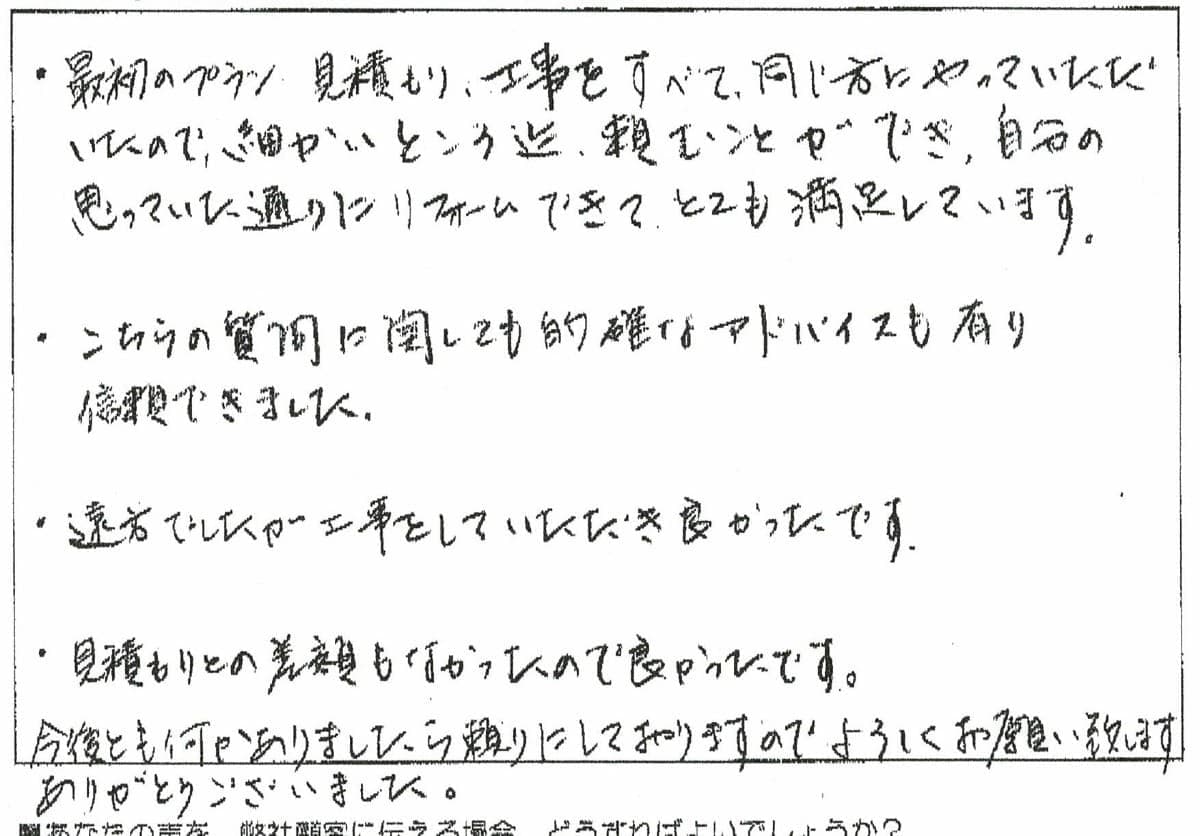 ・最初のプラン 見積もり、工事をすべて、同じ方にやっていただ
いたので、細かいところ迄、頼むことができ、自分の
思っていた通りにリフォームできて、とても満足しています。
・こちらの質問に関しても的確なアドバイスも有り
信頼できました。
・遠方でしたが工事をしていただき良かったです。
・見積もりとの差額もなかったので良かったです。
今後とも何かありましたら頼りにしておりますのでよろしくお願い致します
ありがとうございました。
■あなたの声を、弊社顧客に伝える場合、どうすればよいでしょうか？